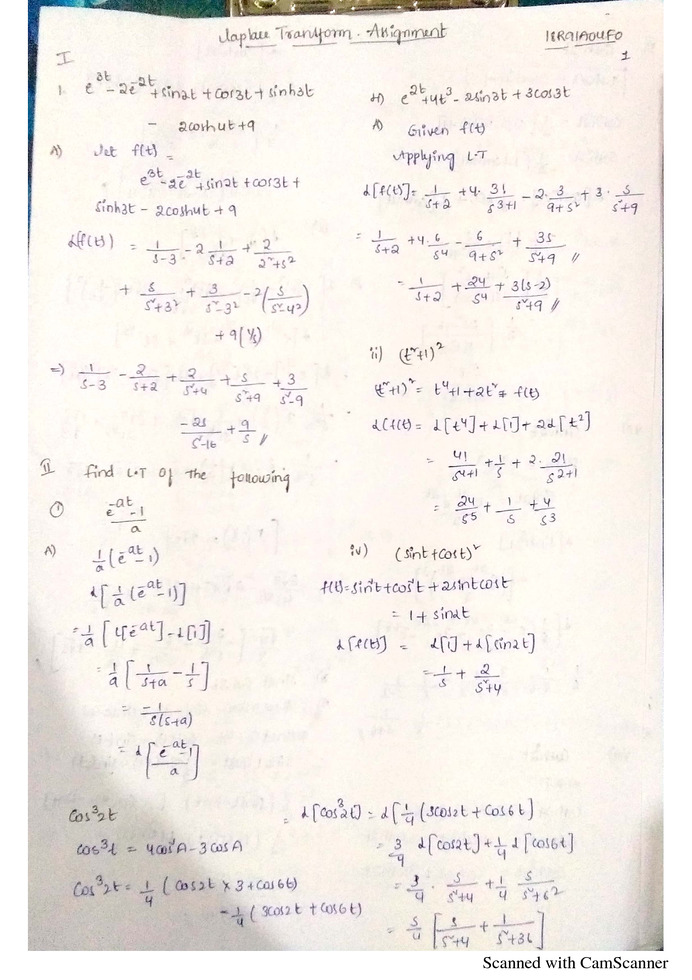 Laplace Transform - Assignment
18R91A04F0
1
I
1. e^{3t} - 2e^{-2t} + sin2t + cos3t + sinh3t
- 2cosh4t + 9
A) Let f(t) =
e^{3t} - 2e^{-2t} + sin2t + cos3t +
sinh3t - 2cosh4t + 9
L{f(t)} = 1/(s-3) - 2 1/(s+2) + 2/(2²+s²)
+ s/(s²+3²) + 3/(s²-3²) - 2(s/(s²-4²))
+ 9(1/s)
=> 1/(s-3) - 2/(s+2) + 2/(s²+4) + s/(s²+9) + 3/(s²-9)
- 2s/(s²-16) + 9/s //
II Find L.T of the following
① (e^{-at} - 1)/a
A) 1/a (e^{-at} - 1)
L[1/a (e^{-at} - 1)]
= 1/a [L[e^{-at}] - L[1]]
= 1/a [1/(s+a) - 1/s]
= -1/(s(s+a))
= L[(e^{-at} - 1)/a]
e^{2t} + 4t^3 - 2sin3t + 3cos3t
A) Given f(t)
Applying L.T
L[f(t)] = 1/(s+2) + 4. 3!/s^{3+1} - 2. 3/(9+s²) + 3. s/(s²+9)
= 1/(s+2) + 4. 6/s^4 - 6/(9+s²) + 3s/(s²+9) //
= 1/(s+2) + 24/s^4 + 3(s-2)/(s²+9) //
ii) (t²+1)^2
(t²+1)^2 = t^4+1+2t² = f(t)
L(f(t)) = L[t^4] + L[1] + 2L[t^2]
= 4!/s^{4+1} + 1/s + 2. 2!/s^{2+1}
= 24/s^5 + 1/s + 4/s^3
iv) (sint + cost)^2
f(t) = sin²t + cos²t + 2sint cost
= 1 + sin2t
L[f(t)] = L[1] + L[sin2t]
= 1/s + 2/(s²+4)
Cos^3 2t
cos^3 t = 4cos³A - 3cosA
Cos^3 2t = 1/4 (cos2t × 3 + cos6t)
- 1/4 (3cos2t + cos6t)
= L[cos^3 2t] = L[1/4 (3cos2t + cos6t]
= 3/4 L[cos2t] + 1/4 L[cos6t]
= 3/4 . s/(s²+4) + 1/4 s/(s²+6^2)
= s/4 [3/(s²+4) + 1/(s²+36)]
Scanned with CamScanner